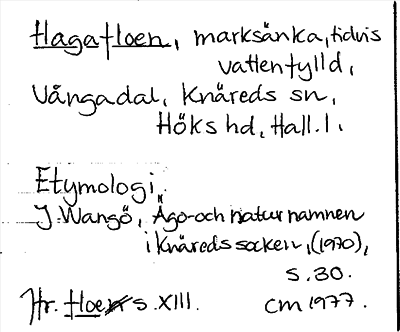 Hagafloen, marksänka, tidvis
vattenfylld,
Vångadal, Knäreds sn,
Höks hd, Hall. l.
Etymologi.
J. Wangö, Ägo- och naturnamnen
i Knäreds socken, (1970),
s. 30.
Jfr. floe s. XIII. CM 1977.